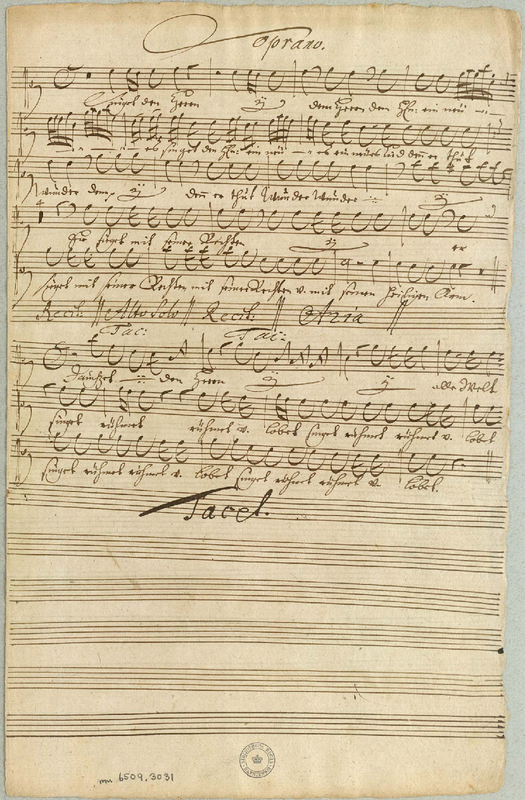 Soprano.
Singet dem Herrn dem Herrn dem Hhn: ein neu
singet dem Hhn: ein neu ein neues Lied den er thut
wunder denn denn er thut Wunder Wunder
Er sieget mit seiner Rechten er
sieget mit seiner Rechten mit seiner Rechten v. mit seinen heiligen Arm.
Recit: Alto Solo Recit: Aria
Tac: Tac:
Jauchzet dem Herrn alle Welt
singet rühmet rühmet v. lobet singet rühmet rühmet v. lobet
singet rühmet rühmet v. lobet singet rühmet rühmet v. lobet.
Tacet.
mu 6509.3031